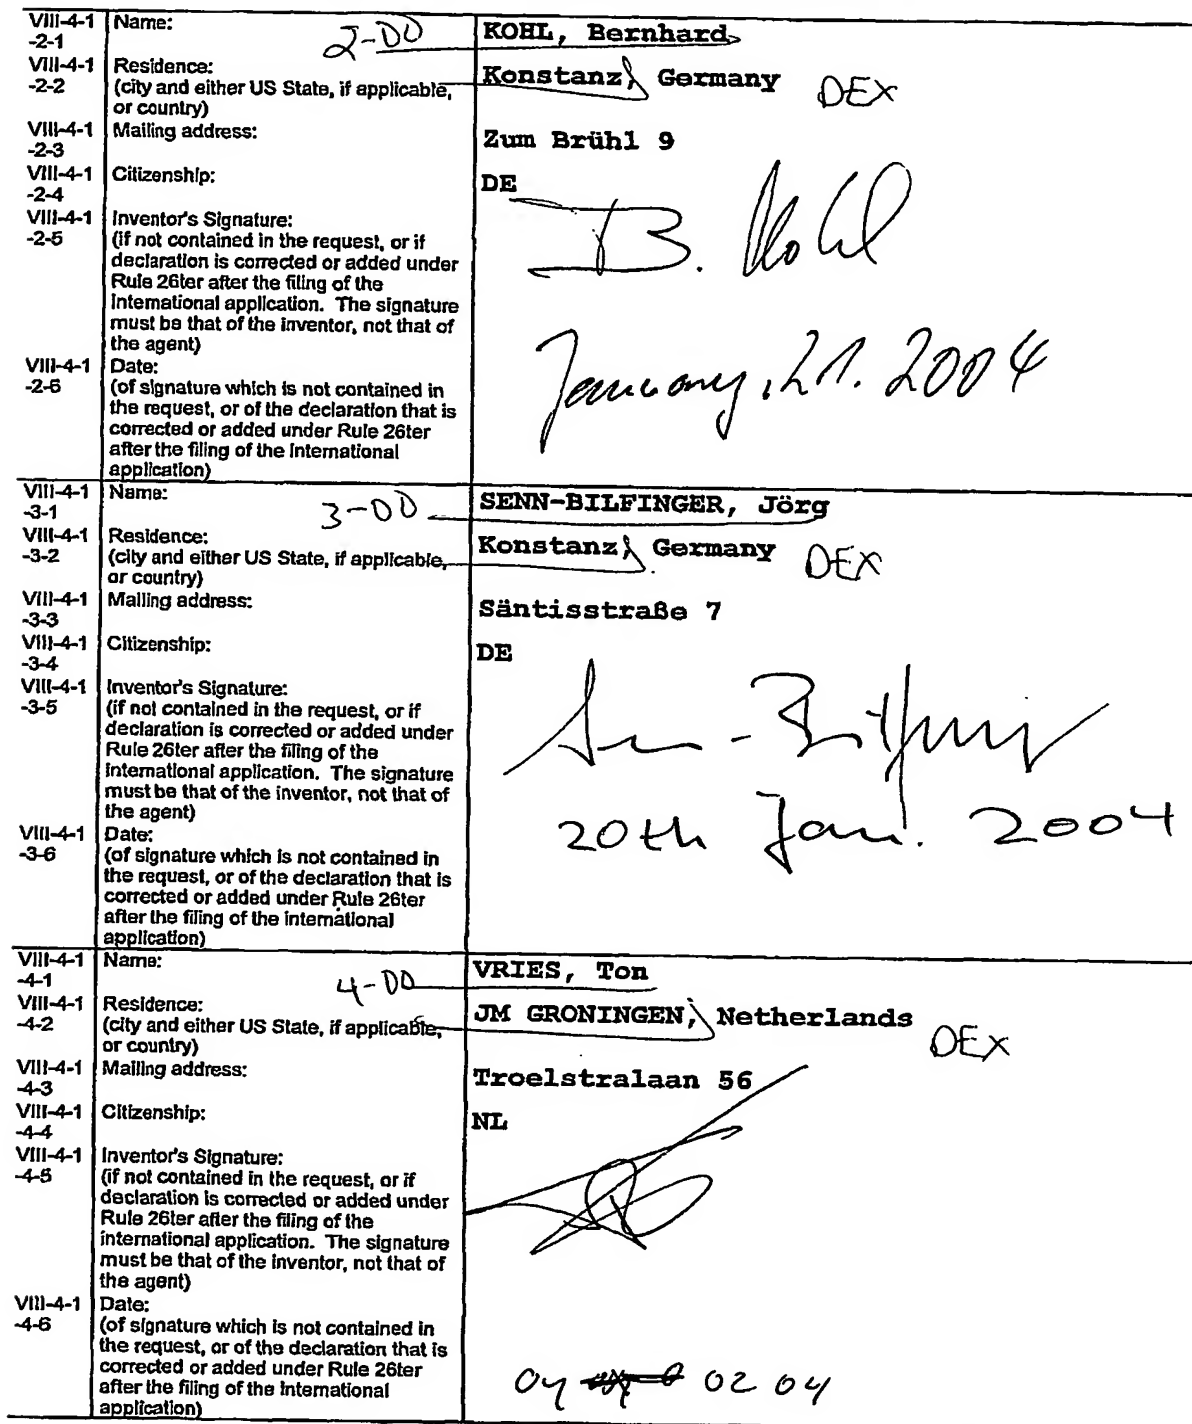 VIII-4-1 Name: 2-DD KOHL, Bernhard
-2-1
VIII-4-1 Residence: Konstanz, Germany DEX
-2-2 (city and either US State, if applicable, or country)
VIII-4-1 Mailing address: Zum Brühl 9
-2-3
VIII-4-1 Citizenship: DE
-2-4
VIII-4-1 Inventor's Signature: B. Kohl
-2-5 (if not contained in the request, or if
declaration is corrected or added under
Rule 26ter after the filing of the
international application. The signature
must be that of the inventor, not that of
the agent)
VIII-4-1 Date: January, 21. 2004
-2-6 (of signature which is not contained in
the request, or of the declaration that is
corrected or added under Rule 26ter
after the filing of the international
application)
VIII-4-1 Name: 3-DD SENN-BILFINGER, Jörg
-3-1
VIII-4-1 Residence: Konstanz, Germany DEX
-3-2 (city and either US State, if applicable, or country)
VIII-4-1 Mailing address: Säntisstraße 7
-3-3
VIII-4-1 Citizenship: DE
-3-4
VIII-4-1 Inventor's Signature:
-3-5 (if not contained in the request, or if
declaration is corrected or added under
Rule 26ter after the filing of the
international application. The signature
must be that of the inventor, not that of
the agent)
VIII-4-1 Date: 20th Jan. 2004
-3-6 (of signature which is not contained in
the request, or of the declaration that is
corrected or added under Rule 26ter
after the filing of the international
application)
VIII-4-1 Name: 4-DD VRIES, Ton
-4-1
VIII-4-1 Residence: JM GRONINGEN, Netherlands DEX
-4-2 (city and either US State, if applicable, or country)
VIII-4-1 Mailing address: Troelstralaan 56
-4-3
VIII-4-1 Citizenship: NL
-4-4
VIII-4-1 Inventor's Signature:
-4-5 (if not contained in the request, or if
declaration is corrected or added under
Rule 26ter after the filing of the
international application. The signature
must be that of the inventor, not that of
the agent)
VIII-4-1 Date: 04 02 04
-4-6 (of signature which is not contained in
the request, or of the declaration that is
corrected or added under Rule 26ter
after the filing of the international
application)